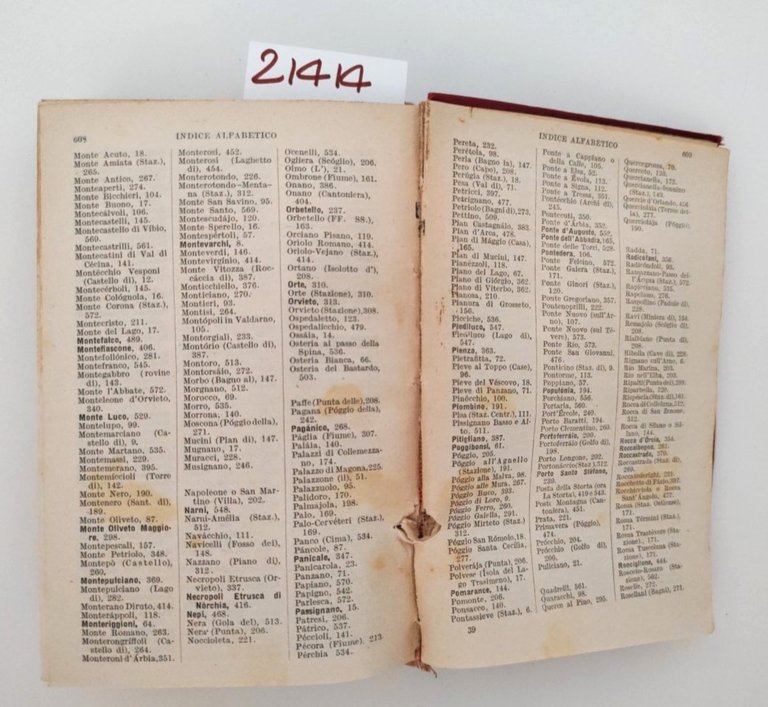 21414
608
INDICE ALFABETICO
Monte Acuto, 18.
Monte Amiata (Staz.),
265.
Monte Antico, 267.
Monteaperti, 274.
Monte Bicchieri, 104.
Monte Buono, 17.
Montecálvoli, 106.
Montecastelli, 145.
Montecastello di Víbio,
569.
Montecastrilli, 561.
Montecatini di Val di
Cécina, 141.
Montécchio Vesponi
(Castello di), 12.
Montecérboli, 145.
Monte Cológnola, 16.
Monte Corona (Staz.),
572.
Montecristo, 211.
Monte del Lago, 17.
Montefalco, 489.
Montefiascone, 406.
Montefollónico, 281.
Montefranco, 545.
Montegabbro (rovine
di), 143.
Monte l'Abbate, 572.
Monteleone d'Orvieto,
340.
Monte Luco, 529.
Montelupo, 99.
Montemarciano (Ca-
stello di), 6.
Monte Martano, 535.
Montemassi, 229.
Montemerano, 395.
Montemiccioli (Torre
di), 142.
Monte Nero, 190.
Montenero (Sant. di),
189.
Monte Oliveto, 87.
Monte Oliveto Maggio-
re, 298.
Montepescali, 157.
Monte Petriolo, 348.
Montepò (Castello),
260.
Montepulciano, 369.
Montepulciano (Lago
di), 282.
Monterano Diruto, 414.
Monteráppoli, 118.
Monteriggioni, 64.
Monte Romano, 263.
Monterongriffoli (Ca-
stello di), 264.
Monteroni d'Árbia, 351.
Monterosi, 452.
Monterosi (Laghetto
di), 454.
Monterotondo, 226.
Monterotondo-Menta-
na (Staz.), 312.
Monte San Savino, 95.
Monte Santo, 569.
Montescudájo, 120.
Monte Sperello, 16.
Montespértoli, 57.
Montevarchi, 8.
Monteverdi, 146.
Montevirgínio, 414.
Monte Vitozza (Roc-
cáccia di), 387.
Montichiello, 376.
Monticiano, 270.
Montieri, 93.
Montisi, 264.
Montópoli in Valdarno,
105.
Montorgiali, 233.
Montório (Castello di),
387.
Montoro, 513.
Montorsáio, 272.
Morbo (Bagno al), 147.
Morgnano, 512.
Morocco, 69.
Morro, 535.
Morrona, 140.
Moscona (Póggio della),
271.
Mucini (Pian di), 147.
Mugnano, 17.
Muracci, 228.
Musignano, 246.
Napoleone o San Mar-
tino (Villa), 202.
Narni, 548.
Narni-Amélia (Staz.),
512.
Navácchio, 111.
Navicelli (Fosso dei),
148.
Nazzano (Piano di)
312.
Necropoli Etrusca (Or-
vieto), 337.
Necropoli Etrusca di
Nórchia, 416.
Nepi, 468.
Nera (Gola del), 513.
Nera (Punta), 206.
Noccioleta, 221.
Ocenelli, 534.
Ogliera (Scóglio), 206.
Olmo (L'), 21.
Ombrone (Fiume), 161.
Onano, 386.
Onano (Cantoniera),
404.
Orbetello, 237.
Orbetello (FF. SS.),
163.
Orciano Pisano, 119.
Oriolo Romano, 414.
Oriolo-Vejano (Staz.),
414.
Ortano (Isolotto d'),
208.
Orte, 310.
Orte (Stazione), 310.
Orvieto, 313.
Orvieto (Stazione), 308.
Ospedaletto, 123.
Ospedalicchio, 479.
Ossáia, 14.
Osteria al passo della
Spina, 536.
Osteria Bianca, 66.
Osteria del Bastardo,
503.
Paffe (Punta delle), 208.
Pagana (Póggio della),
242.
Pagánico, 268.
Páglia (Fiume), 307.
Paláia, 140.
Palazzi di Collemezza-
no, 174.
Palazzo di Magona, 225.
Palazzone (il), 51.
Palazzuolo, 95.
Palidoro, 170.
Palmajola, 198.
Palo, 169.
Palo-Cervéteri (Staz.),
169.
Panco (Cima), 534.
Páncole, 87.
Panicale, 347.
Panicarola, 23.
Panzano, 71.
Papiano, 570.
Papigno, 542.
Parlesca, 572.
Passignano, 15.
Patresi, 206.
Pátrico, 537.
Péccioli, 141.
Pécora (Fiume), 213
Pérchia 534.
INDICE ALFABETICO
609
Pereta, 232.
Perétola, 98.
Perla (Bagno la), 147.
Pero (Capo), 208.
Perúgia (Staz.), 18.
Pesa (Val di), 71.
Petricci, 397.
Petrignano, 477.
Petriolo (Bagni di), 273.
Pettino, 509.
Pian Castagnáio, 383.
Pian d'Arca, 478.
Pian di Mággio (Casa),
165.
Pian di Mucini, 147.
Pianézzoli, 118.
Piano del Lago, 67.
Piano di Giórgio, 362.
Piano di Viterbo, 362.
Pianosa, 210.
Pianura di Grosseto,
156.
Picciche, 536.
Piediluco, 547.
Piediluco (Lago di),
547.
Pienza, 363.
Pietrafitta, 72.
Pieve al Toppo (Case),
96.
Pieve del Véscovo, 18.
Pieve di Panzano, 71.
Pinócchio, 100.
Piombino, 191.
Pisa (Staz. Centr.), 111.
Pissignano Basso e Al-
to, 511.
Pitigliano, 387.
Poggibonsi, 61.
Póggio, 205.
Póggio all'Agnello
(Stazione), 191.
Póggio alla Malva, 98.
Póggio alle Mura, 267.
Póggio Buco, 393.
Póggio di Loro, 9.
Póggio Ferro, 260.
Póggio Gaiella, 291.
Póggio Mirteto (Staz.)
312.
Póggio San Rómolo, 18.
Póggio Santa Cecília,
277.
Polverája (Punta), 206.
Polvese (Isola del La-
go Trasimeno), 17.
Pomarance, 144.
Pomonte, 206.
Ponsacco, 140.
Pontassieve (Staz.), 6.
Ponte a Cappiano o
della Caffe, 106.
Ponte a Elsa, 52.
Ponte a Évola, 113.
Ponte a Signa, 112.
Ponte a Tressa, 351.
Pontécchio (Archi di),
245.
Pontecuti, 350.
Ponte d'Árbia, 352.
Ponte d'Augusto, 552.
Ponte dell'Abbadia, 165.
Ponte delle Torri, 528.
Pontedera, 106.
Ponte Felcino, 572.
Ponte Galera (Staz.)
171.
Ponte Ginori (Staz.)
120.
Ponte Gregoriano, 357.
Pontenoprilli, 222.
Ponte Nuovo (sull'Ar-
no), 107.
Ponte Nuovo (sul Té-
vere), 573.
Ponte Rio, 573.
Ponte San Giovanni,
476.
Ponticino (Staz. di) 9.
Pontormo, 113.
Poppiano, 57.
Populonia, 194.
Porchiano, 556.
Portaria, 560.
Port'Ércole, 240.
Porto Baratti, 194.
Porto Clementino, 260.
Portoferraio, 200.
Portoferraio (Golfo di)
198.
Porto Longone, 202.
Portonáccio (Staz.), 512.
Porto Santo Stéfano,
239.
Posta della Storta (ora
La Storta), 419 e 543.
Posti Montagna (Can-
toniera), 451.
Prata, 221.
Primavera (Póggio),
474.
Prócchio, 204.
Prócchio (Golfo di)
206.
Puliciano, 21.
Quadrelli, 561.
Quaracchi, 98.
Querce al Pino, 295.
Quercegrossa, 70.
Querceto, 120.
Quercianella, 173.
Quercianella-Sonnino
(Staz.), 149.
Querce d'Orlando, 456
Querciolaia (Terme del-
la), 277.
Querciolája (Póggio),
190.
Radda, 71.
Radicofani, 356.
Radicóndoli, 93.
Ramazzano-Passo dei-
l'Acqua (Staz.), 572.
Rapicciano, 535.
Rapolano, 276.
Raspollino (Padule di)
228.
Ravi (Miniera di) 154.
Remajolo (Scóglio di),
208.
Rialbano (Punta di)
208.
Ribolla (Cave di), 228.
Rignano sull'Arno, 6.
Rio Marina, 203.
Rio nell'Elba, 203.
Ripalti (Punta dei), 209.
Riparbella, 120.
Rispéscia (Staz. di), 161.
Rocca di Colleluna, 512.
Rocca di San Zenone,
512.
Rocca di Sillano o Sil-
lano, 144.
Rocca d'Órcia, 354.
Roccalbegna, 261.
Roccastrada, 270.
Roccastrada (Staz. di)
269.
Roccatederighi, 221.
Rocchette di Fíazio, 397.
Rocchicciola o Rocca
Sant'Ángelo, 477.
Roma (Staz. Ostiense),
171.
Roma Términi (Staz.)
171.
Roma Trastévere (Sta-
zione), 171.
Roma Tuscolana (Sta-
zione), 171.
Ronciglione, 444.
Roscio-Rosaro (Sta-
zione), 562.
Roselle, 272.
Rosellani (Bagni), 271.
39